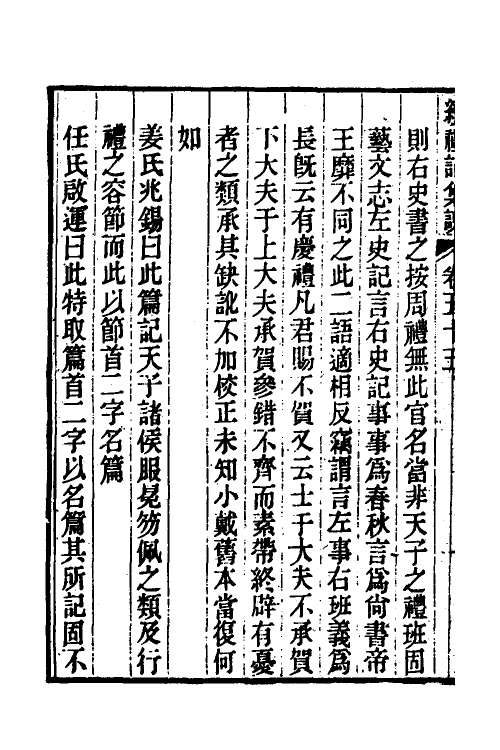 續禮記集說 卷五十五
則右史書之按周禮無此官名當非天子之禮班固
藝文志左史記言右史記事事爲春秋言爲尙書帝
王靡不同之此二語適相反竊謂言左事右班義爲
長旣云有慶禮凡君賜不賀又云士于大夫不承賀
下大夫于上大夫承賀參錯不齊而素帶終辟有憂
者之類承其缺訛不加校正未知小戴舊本當復何
如
姜氏兆錫曰此篇記天子諸侯服冕笏佩之類及行
禮之容節而此以節首二字名篇
任氏啟運曰此特取篇首二字以名篇其所記固不